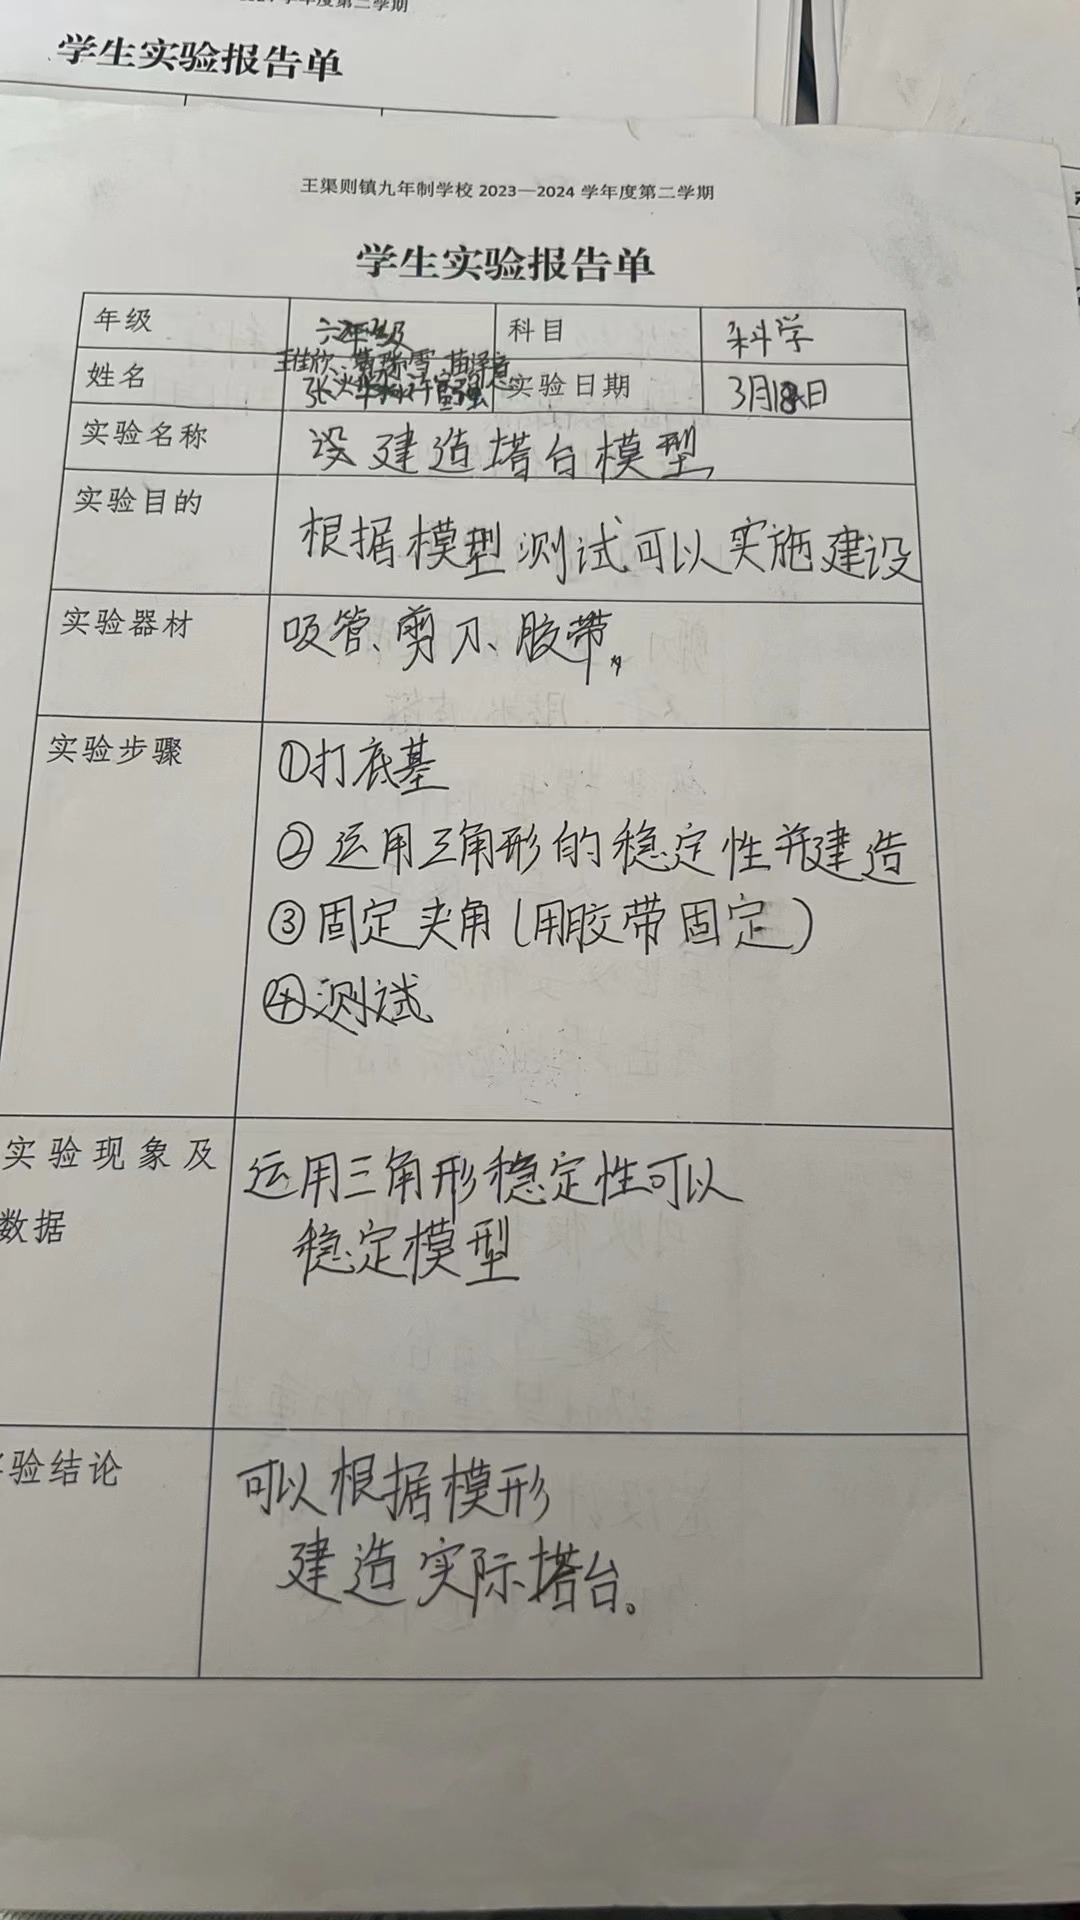 学年度第二学期
学生实验报告单
王渠则镇九年制学校 2023—2024 学年度第二学期
学生实验报告单
年级 六年级 科目 科学
姓名 王佳欣、 实验日期 3月18日
实验名称 设建造塔台模型
实验目的 根据模型测试可以实施建设
实验器材 吸管、剪刀、胶带,
实验步骤 ①打底基
②运用三角形的稳定性并建造
③固定夹角(用胶带固定)
④测试
实验现象及 运用三角形稳定性可以
数据 稳定模型
验结论 可以根据模形
建造实际塔台。